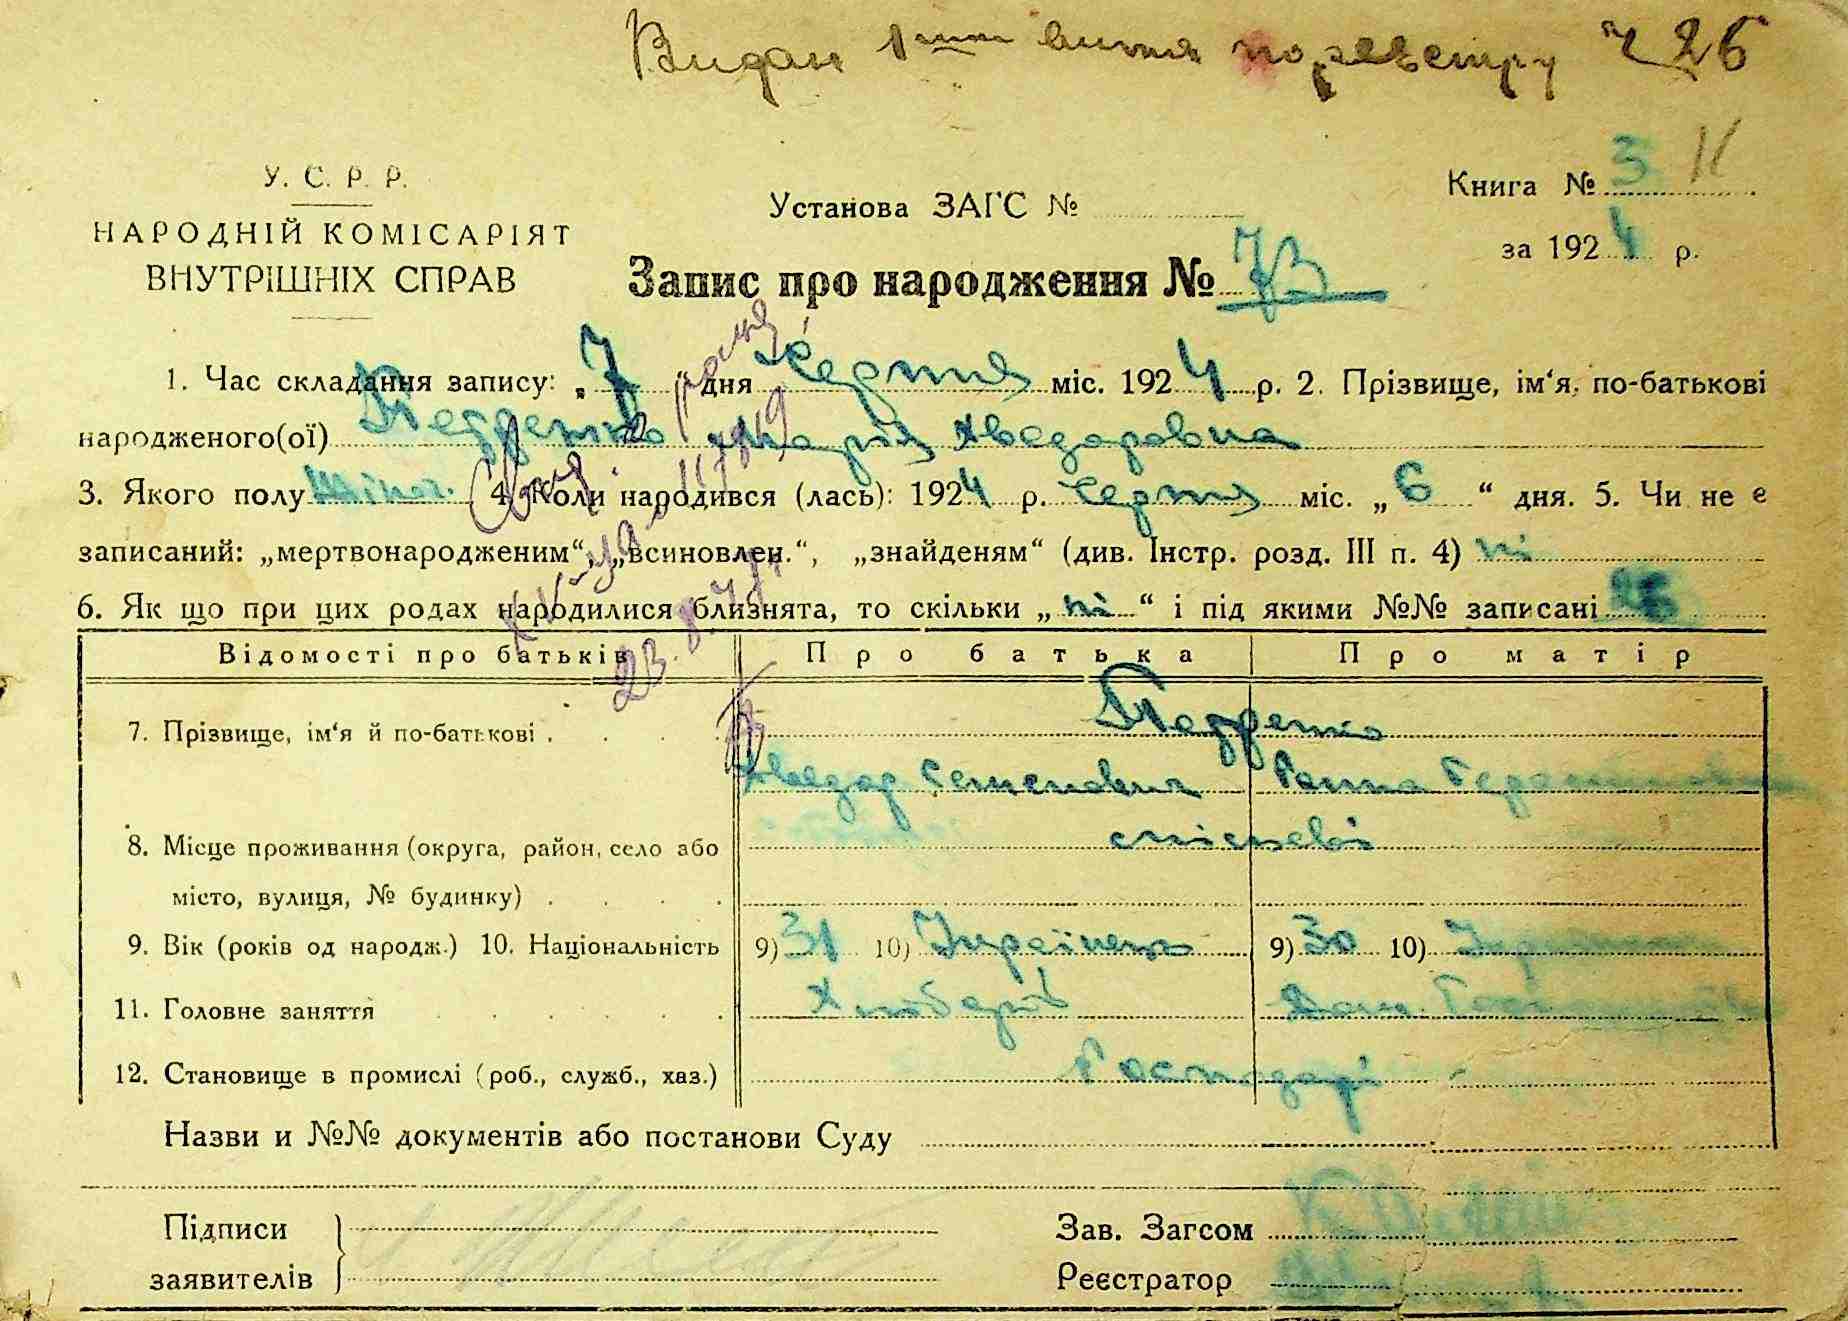 Видан витяг по реєстру № 26
У. С. Р. Р.
НАРОДНІЙ КОМІСАРІЯТ
ВНУТРІШНІХ СПРАВ
Установа ЗАГС №
Книга № 3
за 1924 р.
Запис про народження № 73
1. Час складання запису: „7“ дня Серпня міс. 1924 р. 2. Прізвище, ім‘я, по-батькові
народженого(ої) Марія Хведоровна
3. Якого полу Жіноч. 4. Коли народився (лась): 1924 р. Серпня міс. „6“ дня. 5. Чи не є
записаний: „мертвонародженим“, „всиновлен.“, „знайденям“ (див. Інстр. розд. III п. 4) ні
6. Як що при цих родах народилися близнята, то скільки „ні“ і під якими №№ записані
Відомості про батьків Про батька Про матір
7. Прізвище, ім‘я й по-батькові
Хведор Семенович Ганна
8. Місце проживання (округа, район, село або місцеві
місто, вулиця, № будинку)
9. Вік (років од народж.) 10. Національність 9) 31 10) Українець 9) 30 10)
11. Головне заняття Хлібороб Дом.
12. Становище в промислі (роб., служб., хаз.) Господарі
Назви и №№ документів або постанови Суду
Підписи Зав. Загсом
заявителів Реєстратор